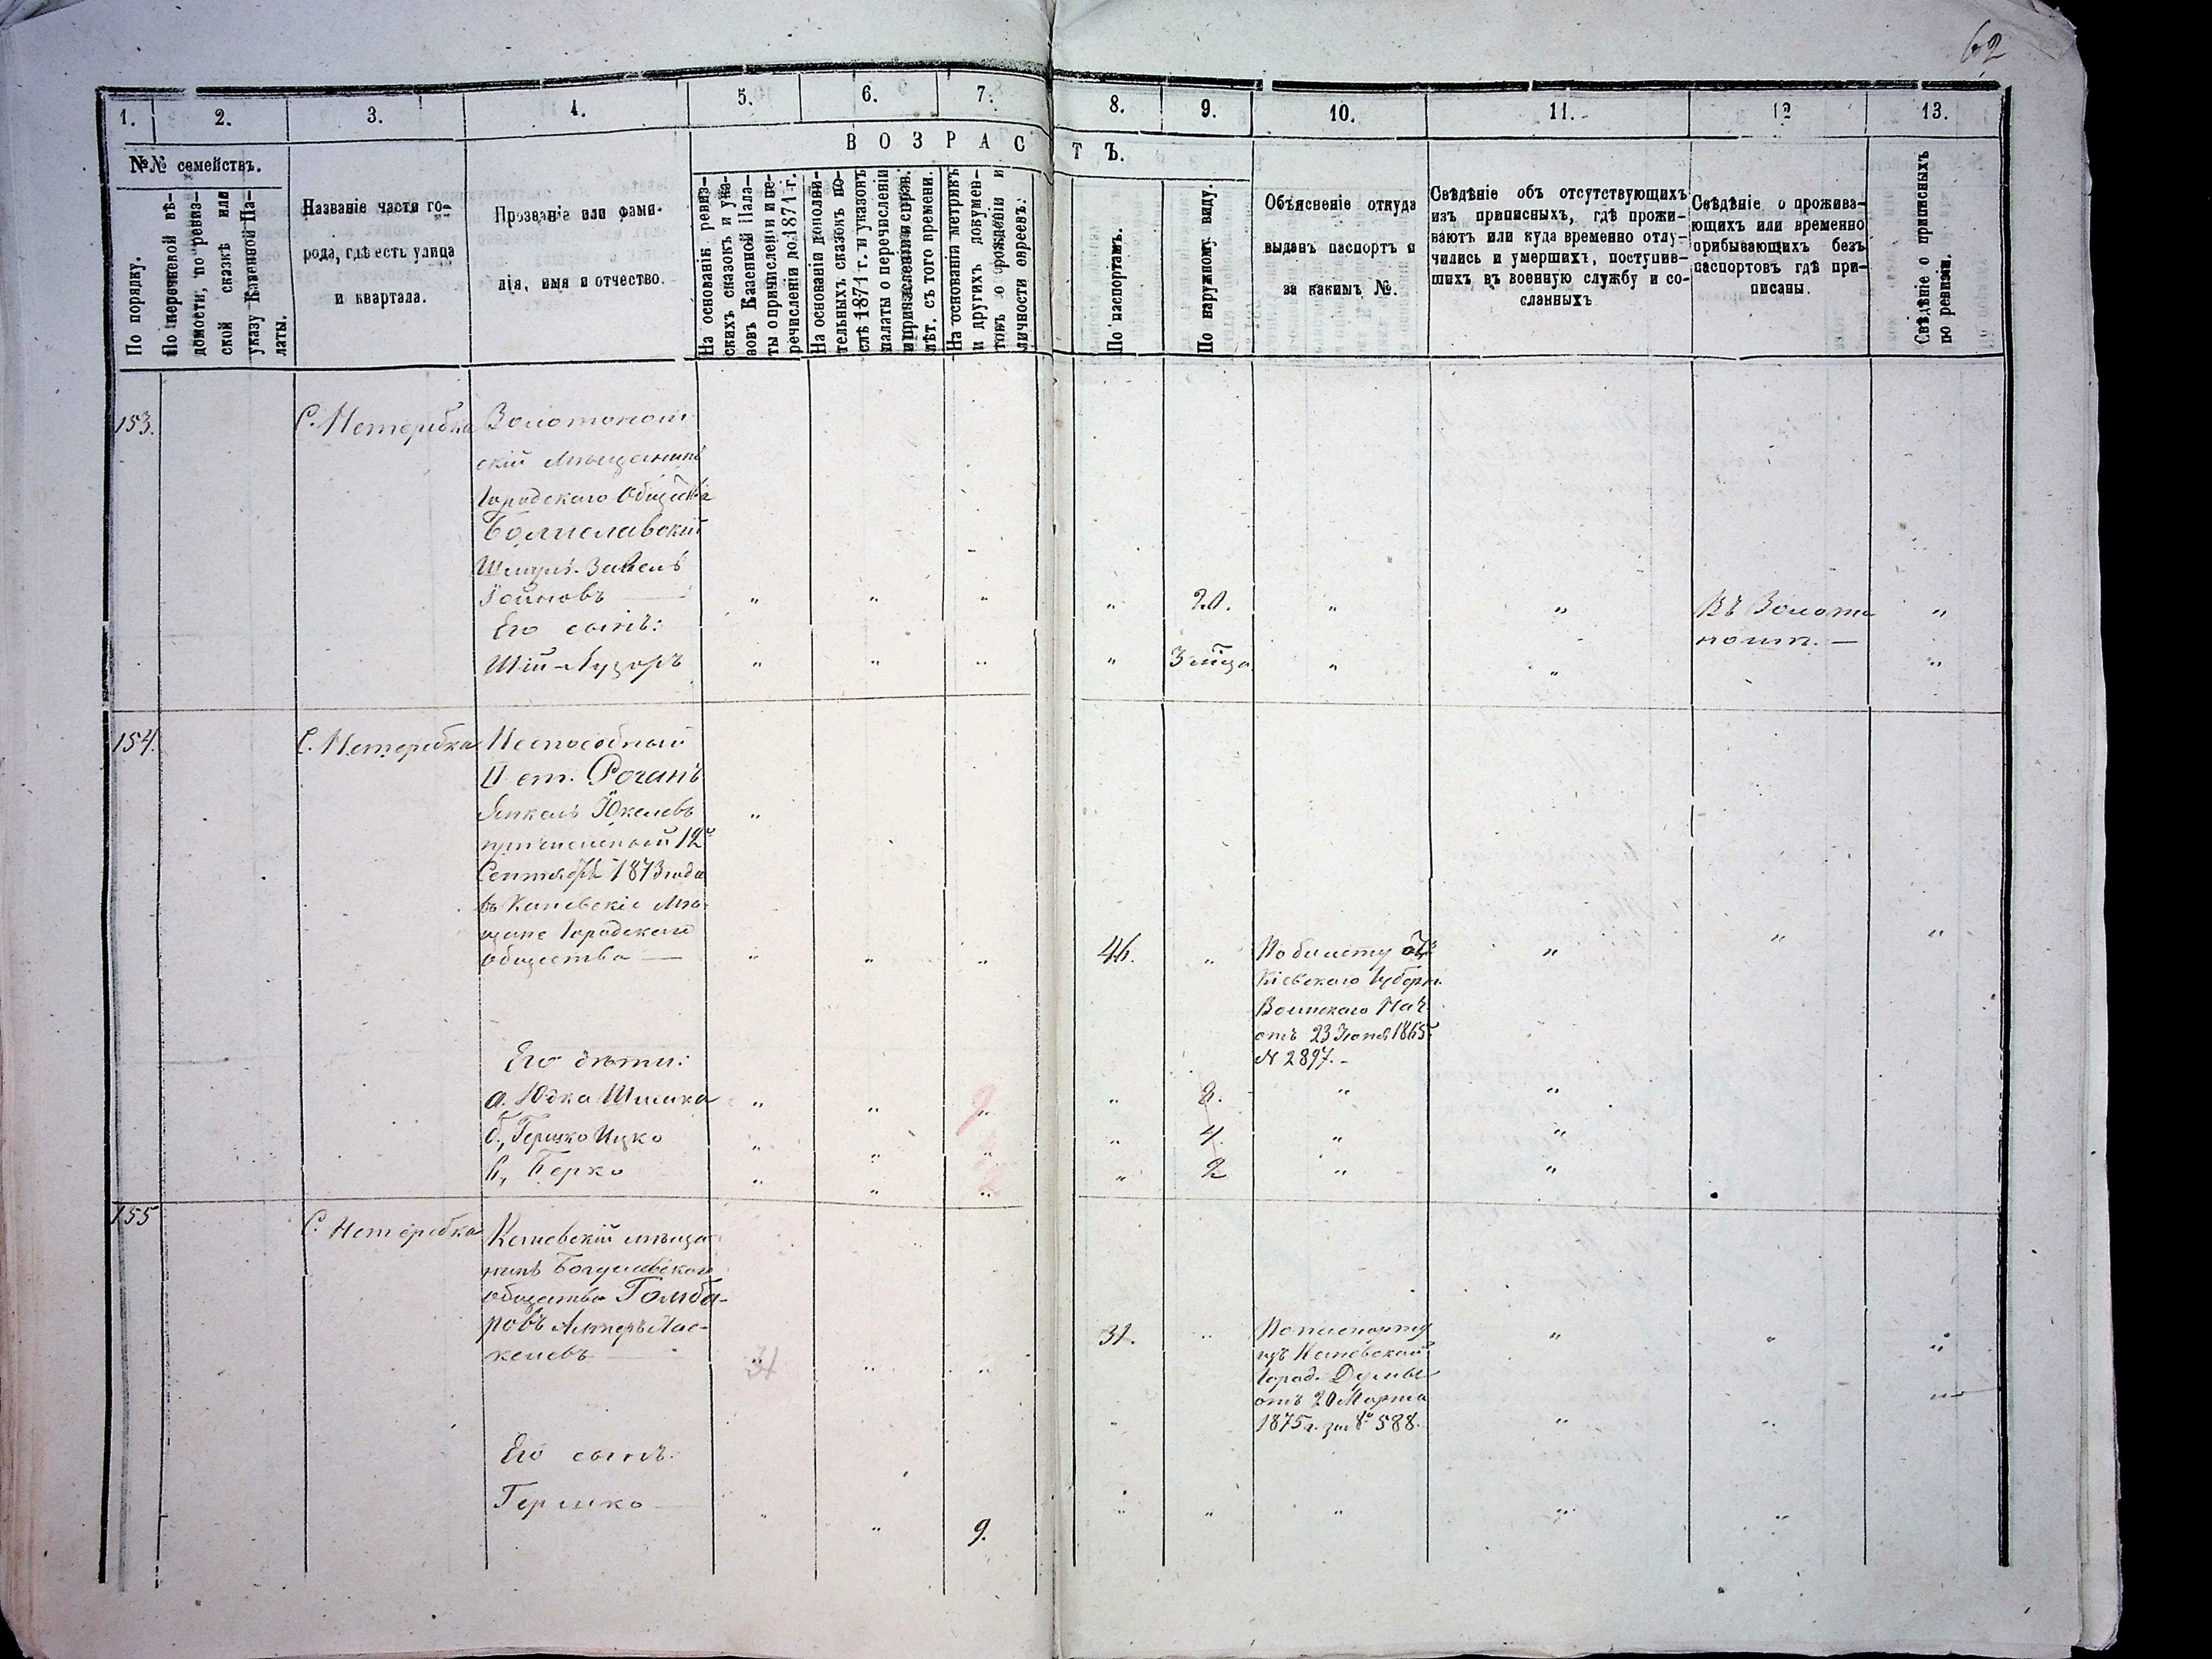 62
1. 2. 3. 4. 5. 6. 7. 8. 9. 10. 11. 12 13.
№№ семействъ.
В О З Р А С Т Ъ.
По порядку.
По перечневой вѣ-
домости, по ревиз-
ской сказкѣ или
указу Казенной Па-
латы.
Названіе части го-
рода, гдѣ есть улица
и квартала.
Прозваніе или фами-
лія, имя и отчество.
На основаніи ревиз-
скихъ сказокъ и ука-
зовъ Казенной Пала-
ты о причисленіи и пе-
речисленіи до 1871 г.
На основаніи дополни-
тельныхъ сказокъ по-
слѣ 1871 г. и указовъ
палаты о перечисленіи
лѣт. съ того времени.
На основаніи метрикъ
и другихъ докумен-
товъ о рожденіи и
личности евреевъ.
По паспортамъ.
По наружному виду.
Объясненіе откуда
выданъ паспортъ и
за какимъ №.
Свѣдѣніе объ отсутствующихъ
изъ приписныхъ, гдѣ прожи-
ваютъ или куда временно отлу-
чились и умершихъ, поступив-
шихъ въ военную службу и со-
сланныхъ
Свѣдѣніе о прожива-
ющихъ или временно
прибывающихъ безъ
паспортовъ гдѣ при-
писаны.
Свѣдѣніе о приписныхъ
по ревизіи.
153. С. Нетеребка Золотонош-
скій Мѣщанинъ
Городского Общества
Богуславскій
Шмуль-Завель
" " " " 20. " " Въ Золото "
Его сынъ: ношѣ. —
" " " " 3 м-ца " " "
154. С. Нетеребка Неспособный
II ст. Роганъ
Янкель Юкелевъ "
причисленный 12й
Сентября 1873 года
въ Каневскіе Мѣ-
щане Городского
общества — " " " 46. " По билету отъ " " "
Кіевскаго Губерн.
Воинскаго Нач.
отъ 23 Іюня 1865
N 2897. -
Его дѣти:
а. Юдка Шимка " " " " 8. " "
б., Гершко Ицко " " " " 4. " "
в., Берко " " " " 2 " "
155 С. Нетеребка Каневскій мѣща-
нинъ Богуславскаго
общества Голиба-
ровъ Алтеръ Хас-
келевъ 31 " " 31. " По паспорту " " "
изъ Каневской
Город. Думы
отъ 20 Марта
1875 г. за № 588. " "
Его сынъ:
Гершко " " 9. " " " " "